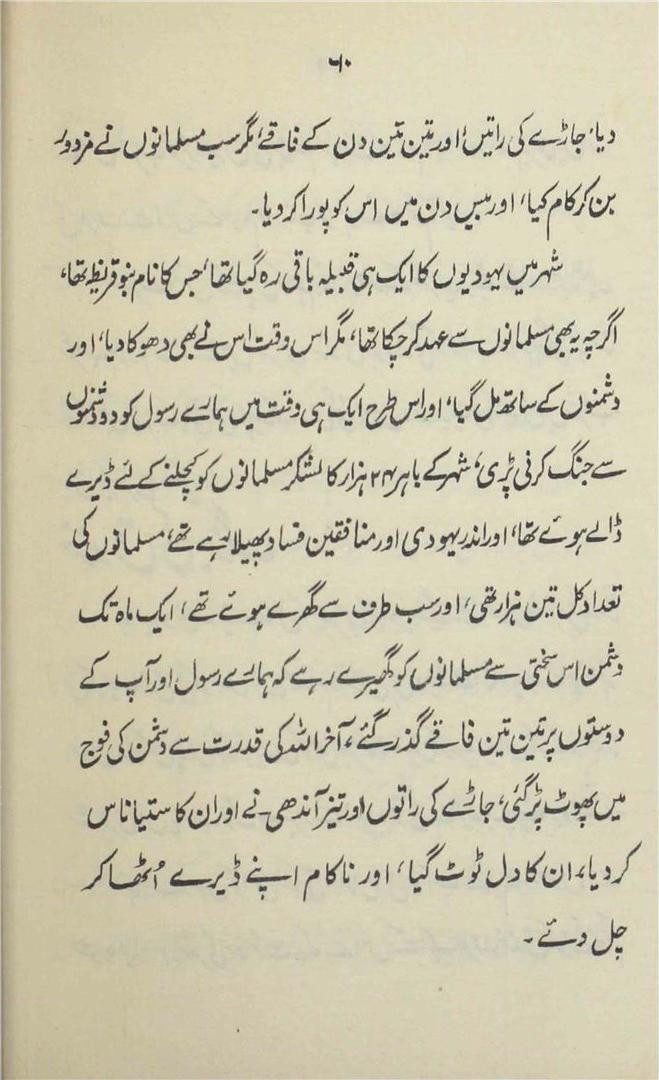 ۶۰
دیا، جاڑے کی راتیں، اور تین تین دن کے فاقے، مگر سب مسلمانوں نے مزدور
بن کر کام کیا، اور بیس دن میں اس کو پورا کر دیا۔
شہر میں یہودیوں کا ایک ہی قبیلہ باقی رہ گیا تھا، جس کا نام بنو قریظہ تھا،
اگرچہ یہ بھی مسلمانوں سے عہد کر چکا تھا، مگر اس وقت اس نے بھی دھوکا دیا، اور
دشمنوں کے ساتھ مل گیا، اور اس طرح ایک ہی وقت میں ہمارے رسول کو دو دشمنوں
سے جنگ کرنی پڑی، شہر کے باہر ۲۴ ہزار کا لشکر مسلمانوں کو کچلنے کے لئے ڈیرے
ڈالے ہوئے تھا، اور اندر یہودی اور منافقین فساد پھیلا رہے تھے، مسلمانوں کی
تعداد کل تین ہزار تھی، اور سب طرف سے گھرے ہوئے تھے، ایک ماہ تک
دشمن اس سختی سے مسلمانوں کو گھیرے رہے کہ ہمارے رسول اور آپ کے
دوستوں پر تین تین فاقے گذر گئے، آخر اللہ کی قدرت سے دشمن کی فوج
میں پھوٹ پڑ گئی، جاڑے کی راتوں اور تیز آندھی نے اور ان کا ستیاناس
کر دیا، ان کا دل ٹوٹ گیا، اور ناکام اپنے ڈیرے اُٹھا کر
چل دئے۔